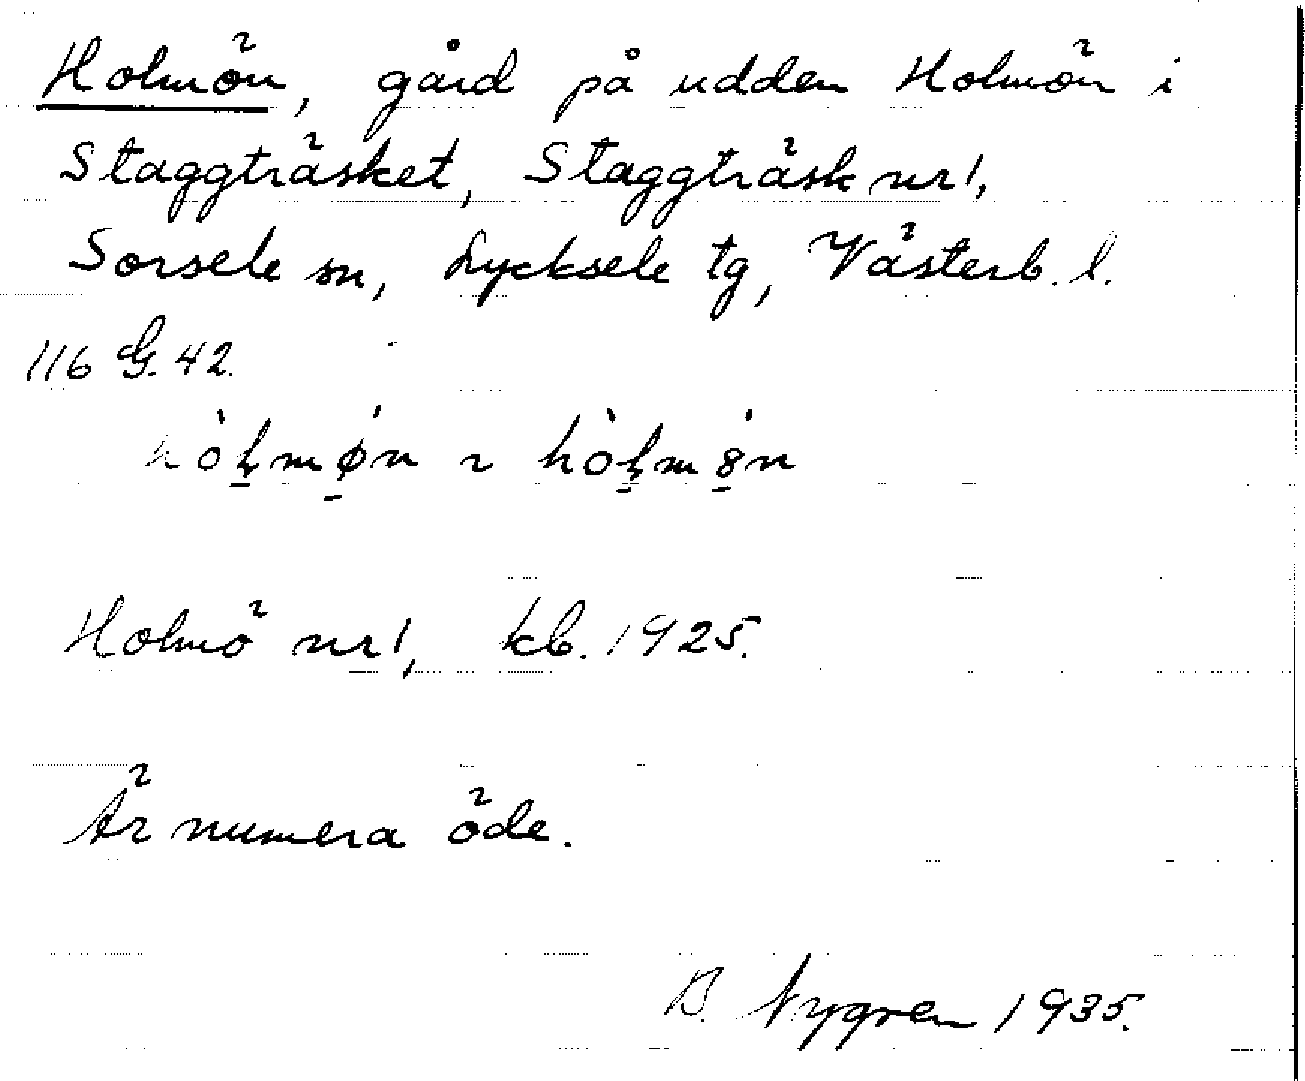 Holmön, gård på udden Holmön i
Staggträsket, Staggträsk nr 1,
Sorsele sn, Lycksele tg, Västerb. l.
116 G. 42.
hòḷmǿ̱n ~ hòḷmȣ̱́n
Holmö nr 1, kb. 1925.
Är numera öde.
B. Nygren 1935.